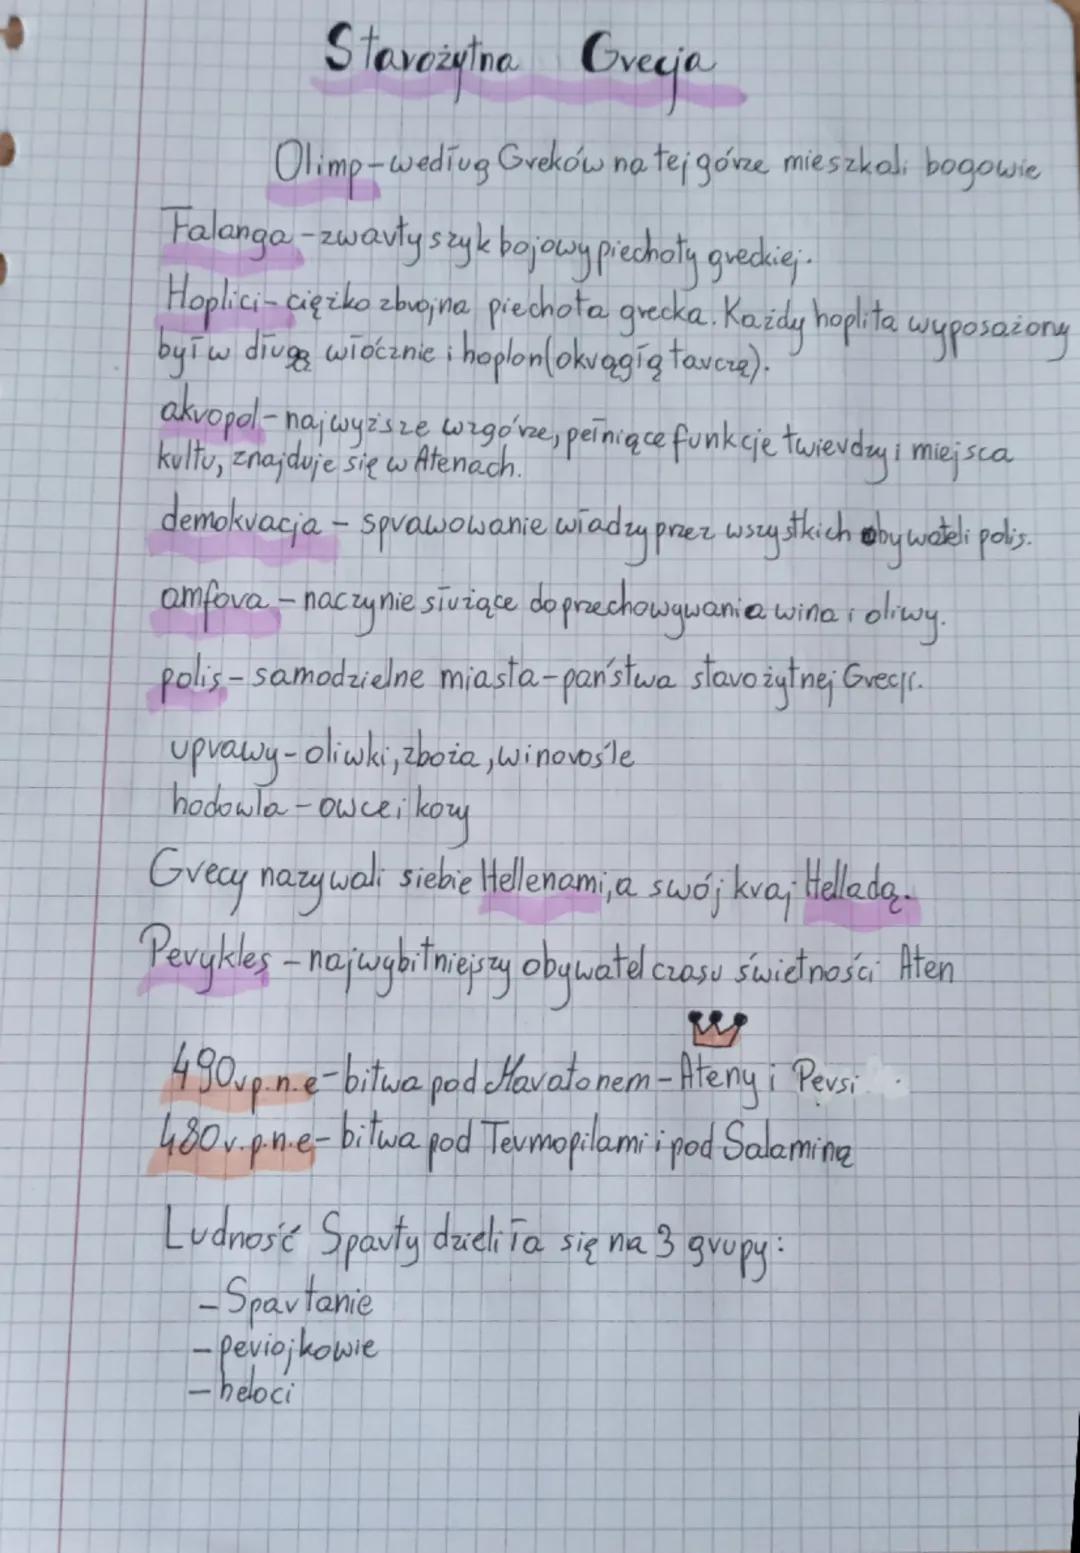 Starożytna Grecja
Olimp-według Greków na tej górze mieszkali bogowie
Falanga-zwarty szyk bojowy piechoty greckiej.
Hoplici-ciężko zbrojna piechota grecka. Każdy hoplita wyposażony
był w długą włócznie i hoplon(okrągłą tarczę).
akropol-najwyższe wzgórze, pełniące funkcje twierdzy i miejsca
kultu, znajduje się w Atenach.
demokracja - sprawowanie władzy przez wszystkich obywateli polis.
amfora - naczynie służące do przechowywania wina i oliwy.
polis - samodzielne miasta-państwa starożytnej Grecji.
uprawy-oliwki, zboża, winorośle
hodowla-owce i kozy
Grecy nazywali siebie Hellenami, a swój kraj Helladą.
Perykles - najwybitniejszy obywatel czasu świetności Aten
490r p.n.e-bitwa pod Maratonem-Ateny i Persi
480r.p.n.e-bitwa pod Termopilami i pod Salaminą
Ludność Sparty dzieliła się na 3 grupy:
-Spartanie
-periojkowie
-heloci